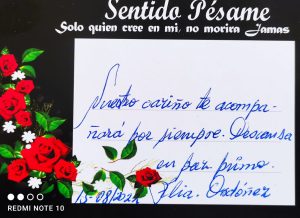 Sentido Pésame
Solo quien cree en mi, no morira Jamas
Nuestro cariño te acompa-
ñará por siempre. Descansa
en paz primo.
15-08/2021 Flia. Ordóñez
REDMI NOTE 10